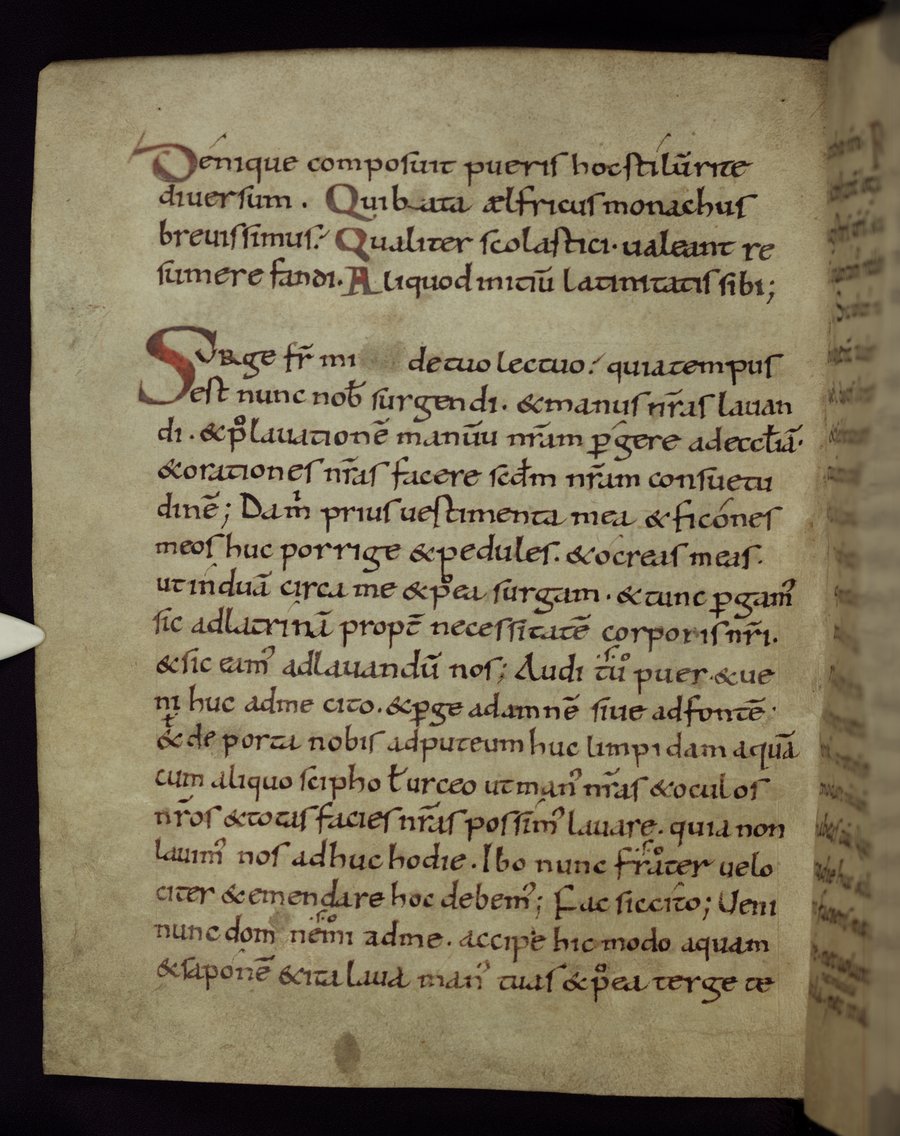 Denique composuit pueris hoc stilū rite
diuersum . Qui bata ælfricus monachus
breuissimus. Qualiter scolastici · ualeant re
sumere fandi. Aliquod initiū latinitatis sibi;
Surge fr̄ mi de tuo lectuo. quia tempus
est nunc nob̄ surgendi. & manus nr̄as lauan
di. & p̊ lauationē manūu nr̄am ꝑgere ad eccl̄iā·
& orationes nr̄as facere scdm̄ nr̄am consuetu
dinē; Dam̄ prius uestimenta mea & ficones
meos huc porrige & pedules. & ocreas meas.
ut induā circa me & p̊ea surgam. & tunc ꝑgam᾽
sic ad latrinā propt̄ necessitatē corporis nr̄i.
& sic eam᾽ ad lauandū nos; Audi tu puer & ue
ni huc ad me cito. & ꝑge ad amnē siue ad fontē
ł & deporta nobis ad puteum huc limpidam aquā
cum aliquo scipho ł urceo ut man᾽ nr̄as & oculos
nr̄os & totas facies nr̄as possim᾽ lauare. quia non
lauim᾽ nos adhuc hodie. Ibo nunc frater uelo
citer & emendare hoc debem᾽; Fac sic cito; Ueni
nunc dom nemi ad me. accipe hic modo aquam
& saponē & ita laua man᾽ tuas & p̊ea terge te